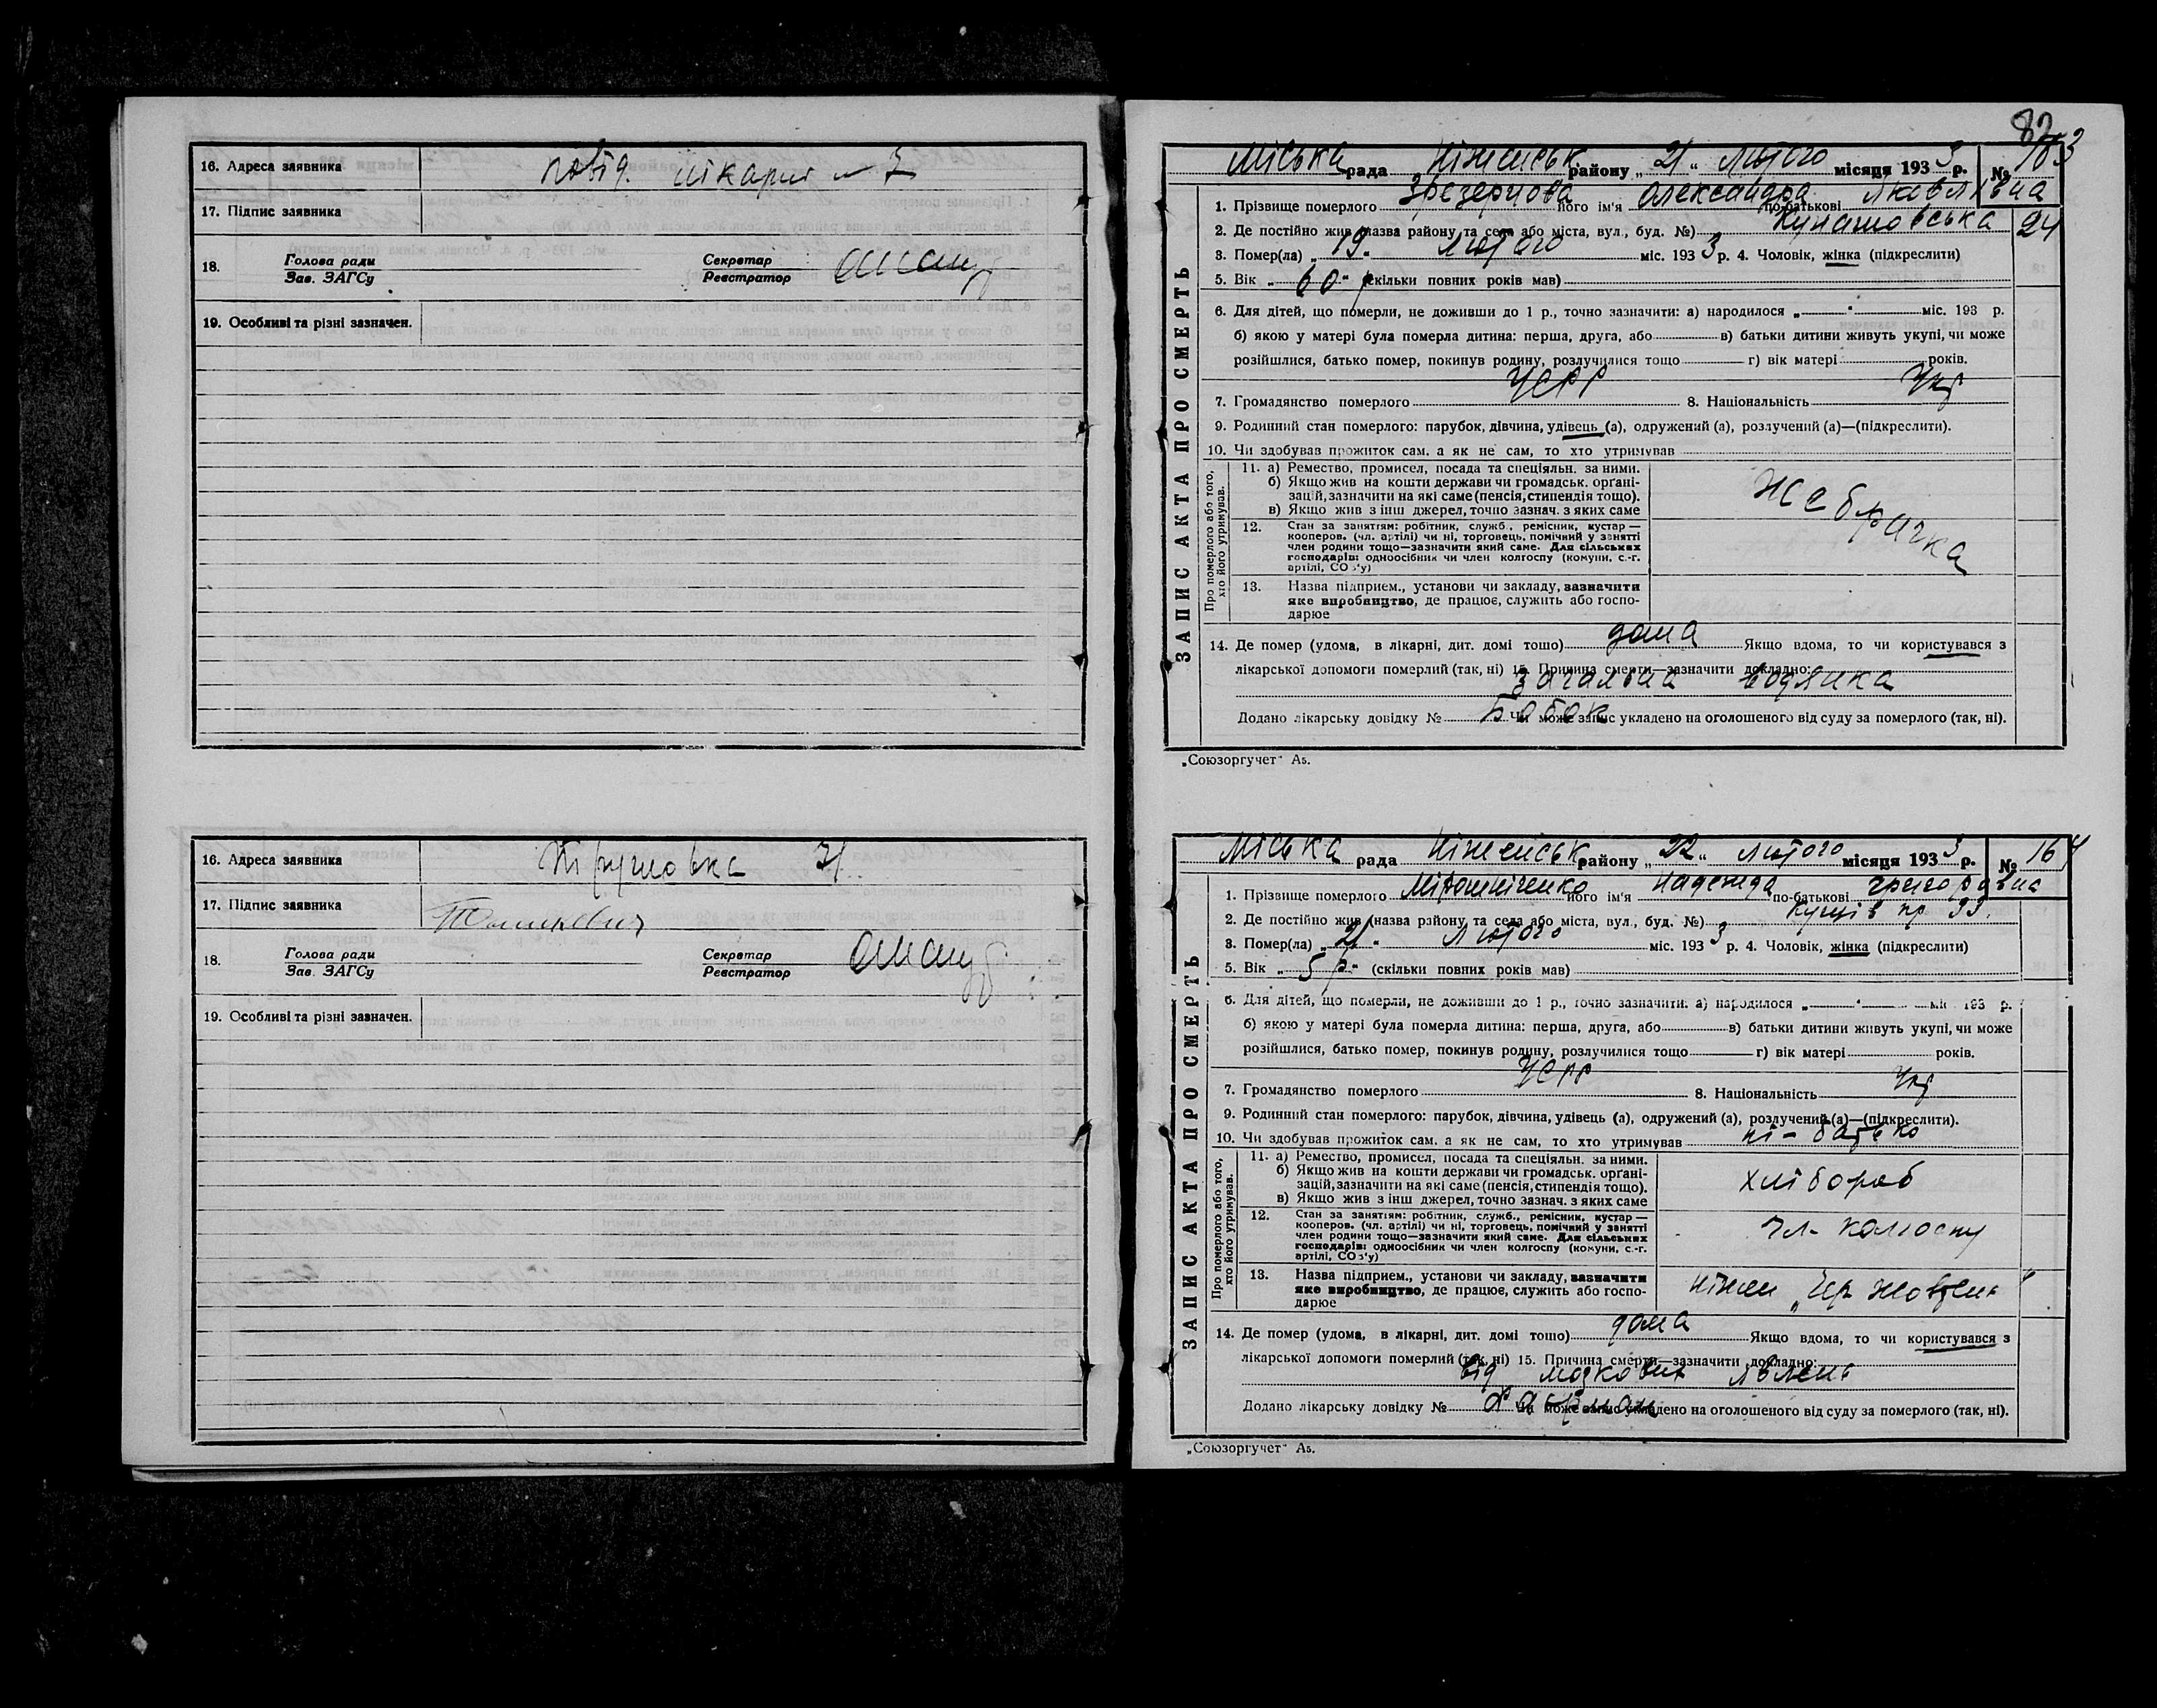 16. Адреса заявника повід. лікарні № 7
17. Підпис заявника
18. Голова ради Зав. ЗАГСу Секретар Реєстратор
19. Особливі та різні зазначен.
16. Адреса заявника 31
17. Підпис заявника
18. Голова ради Зав. ЗАГСу Секретар Реєстратор
19. Особливі та різні зазначен.
82
ЗАПИС АКТА ПРО СМЕРТЬ
Міська рада Ніженськ району „21“ лютого місяця 1933 р. № 163
1. Прізвище померлого його ім'я Олександра по-батькові Яковлівна
2. Де постійно жив (назва району та села або міста, вул., буд. №) Кунашовська 24
3. Помер(ла) „19“ лютого міс. 1933 р. 4. Чоловік, жінка (підкреслити)
5. Вік „60“ р (скільки повних років мав)
6. Для дітей, що померли, не доживши до 1 р., точно зазначити: а) народилося „ “ міс. 193 р.
б) якою у матері була померла дитина: перша, друга, або в) батьки дитини живуть укупі, чи може
розійшлися, батько помер, покинув родину, розлучилися тощо г) вік матері років.
7. Громадянство померлого УСРР 8. Національність Укр
9. Родинний стан померлого: парубок, дівчина, удівець (а), одружений (а), розлучений (а)—(підкреслити).
10. Чи здобував прожиток сам, а як не сам, то хто утримував
Про померлого або того, хто його утримував.
11. а) Ремество, промисел, посада та спеціяльн. за ними.
б) Якщо жив на кошти держави чи громадськ. орґані-
зацій, зазначити на які саме (пенсія, стипендія тощо).
в) Якщо жив з інш джерел, точно зазнач. з яких саме
Жебрачка
12. Стан за занятям: робітник, служб., ремісник, кустар —
кооперов. (чл. артілі) чи ні, торговець, помічний у занятті
член родини тощо—зазначити який саме. Для сільських
господарів: одноосібник чи член колгоспу (комуни, с.-г.
артілі, СОЗ'у)
13. Назва підприєм., установи чи закладу, зазначити
яке виробництво, де працює, служить або госпо-
дарює
14. Де помер (удома, в лікарні, дит. домі тощо) дома Якщо вдома, то чи користувався з
лікарської допомоги померлий (так, ні) 15. Причина смерти—зазначити докладно:
Загальна водянка
Додано лікарську довідку № Бабак Чи може запис укладено на оголошеного від суду за померлого (так, ні).
„Союзоргучет“ А5.
ЗАПИС АКТА ПРО СМЕРТЬ
Міська рада Ніженськ району „22“ лютого місяця 1933 р. № 164
1. Прізвище померлого Мірошніченко його ім'я Надежда по-батькові Григоровна
2. Де постійно жив (назва району та села або міста, вул., буд. №) Кущів пр 33.
3. Помер(ла) „21“ лютого міс. 1933 р. 4. Чоловік, жінка (підкреслити)
5. Вік „5 р“ (скільки повних років мав)
6. Для дітей, що померли, не доживши до 1 р., точно зазначити: а) народилося „ “ міс 193 р.
б) якою у матері була померла дитина: перша, друга, або в) батьки дитини живуть укупі, чи може
розійшлися, батько помер, покинув родину, розлучилися тощо г) вік матері років.
7. Громадянство померлого УСРР 8. Національність Укр
9. Родинний стан померлого: парубок, дівчина, удівець (а), одружений (а), розлучений (а)—(підкреслити).
10. Чи здобував прожиток сам, а як не сам, то хто утримував ні – батько
Про померлого або того, хто його утримував.
11. а) Ремество, промисел, посада та спеціяльн. за ними.
б) Якщо жив на кошти держави чи громадськ. орґані-
зацій, зазначити на які саме (пенсія, стипендія тощо).
в) Якщо жив з інш джерел, точно зазнач. з яких саме
хлібороб
12. Стан за занятям: робітник, служб., ремісник, кустар —
кооперов. (чл. артілі) чи ні, торговець, помічний у занятті
член родини тощо—зазначити який саме. Для сільських
господарів: одноосібник чи член колгоспу (комуни, с.-г.
артілі, СОЗ'у)
чл. колгоспу
13. Назва підприєм., установи чи закладу, зазначити
яке виробництво, де працює, служить або госпо-
дарює
Ніжен „Чер Жовтень“
14. Де помер (удома, в лікарні, дит. домі тощо) дома Якщо вдома, то чи користувався з
лікарської допомоги померлий (так, ні) 15. Причина смерти—зазначити докладно:
від мозкових явлень
Додано лікарську довідку № Чи може запис укладено на оголошеного від суду за померлого (так, ні).
„Союзоргучет“ А5.